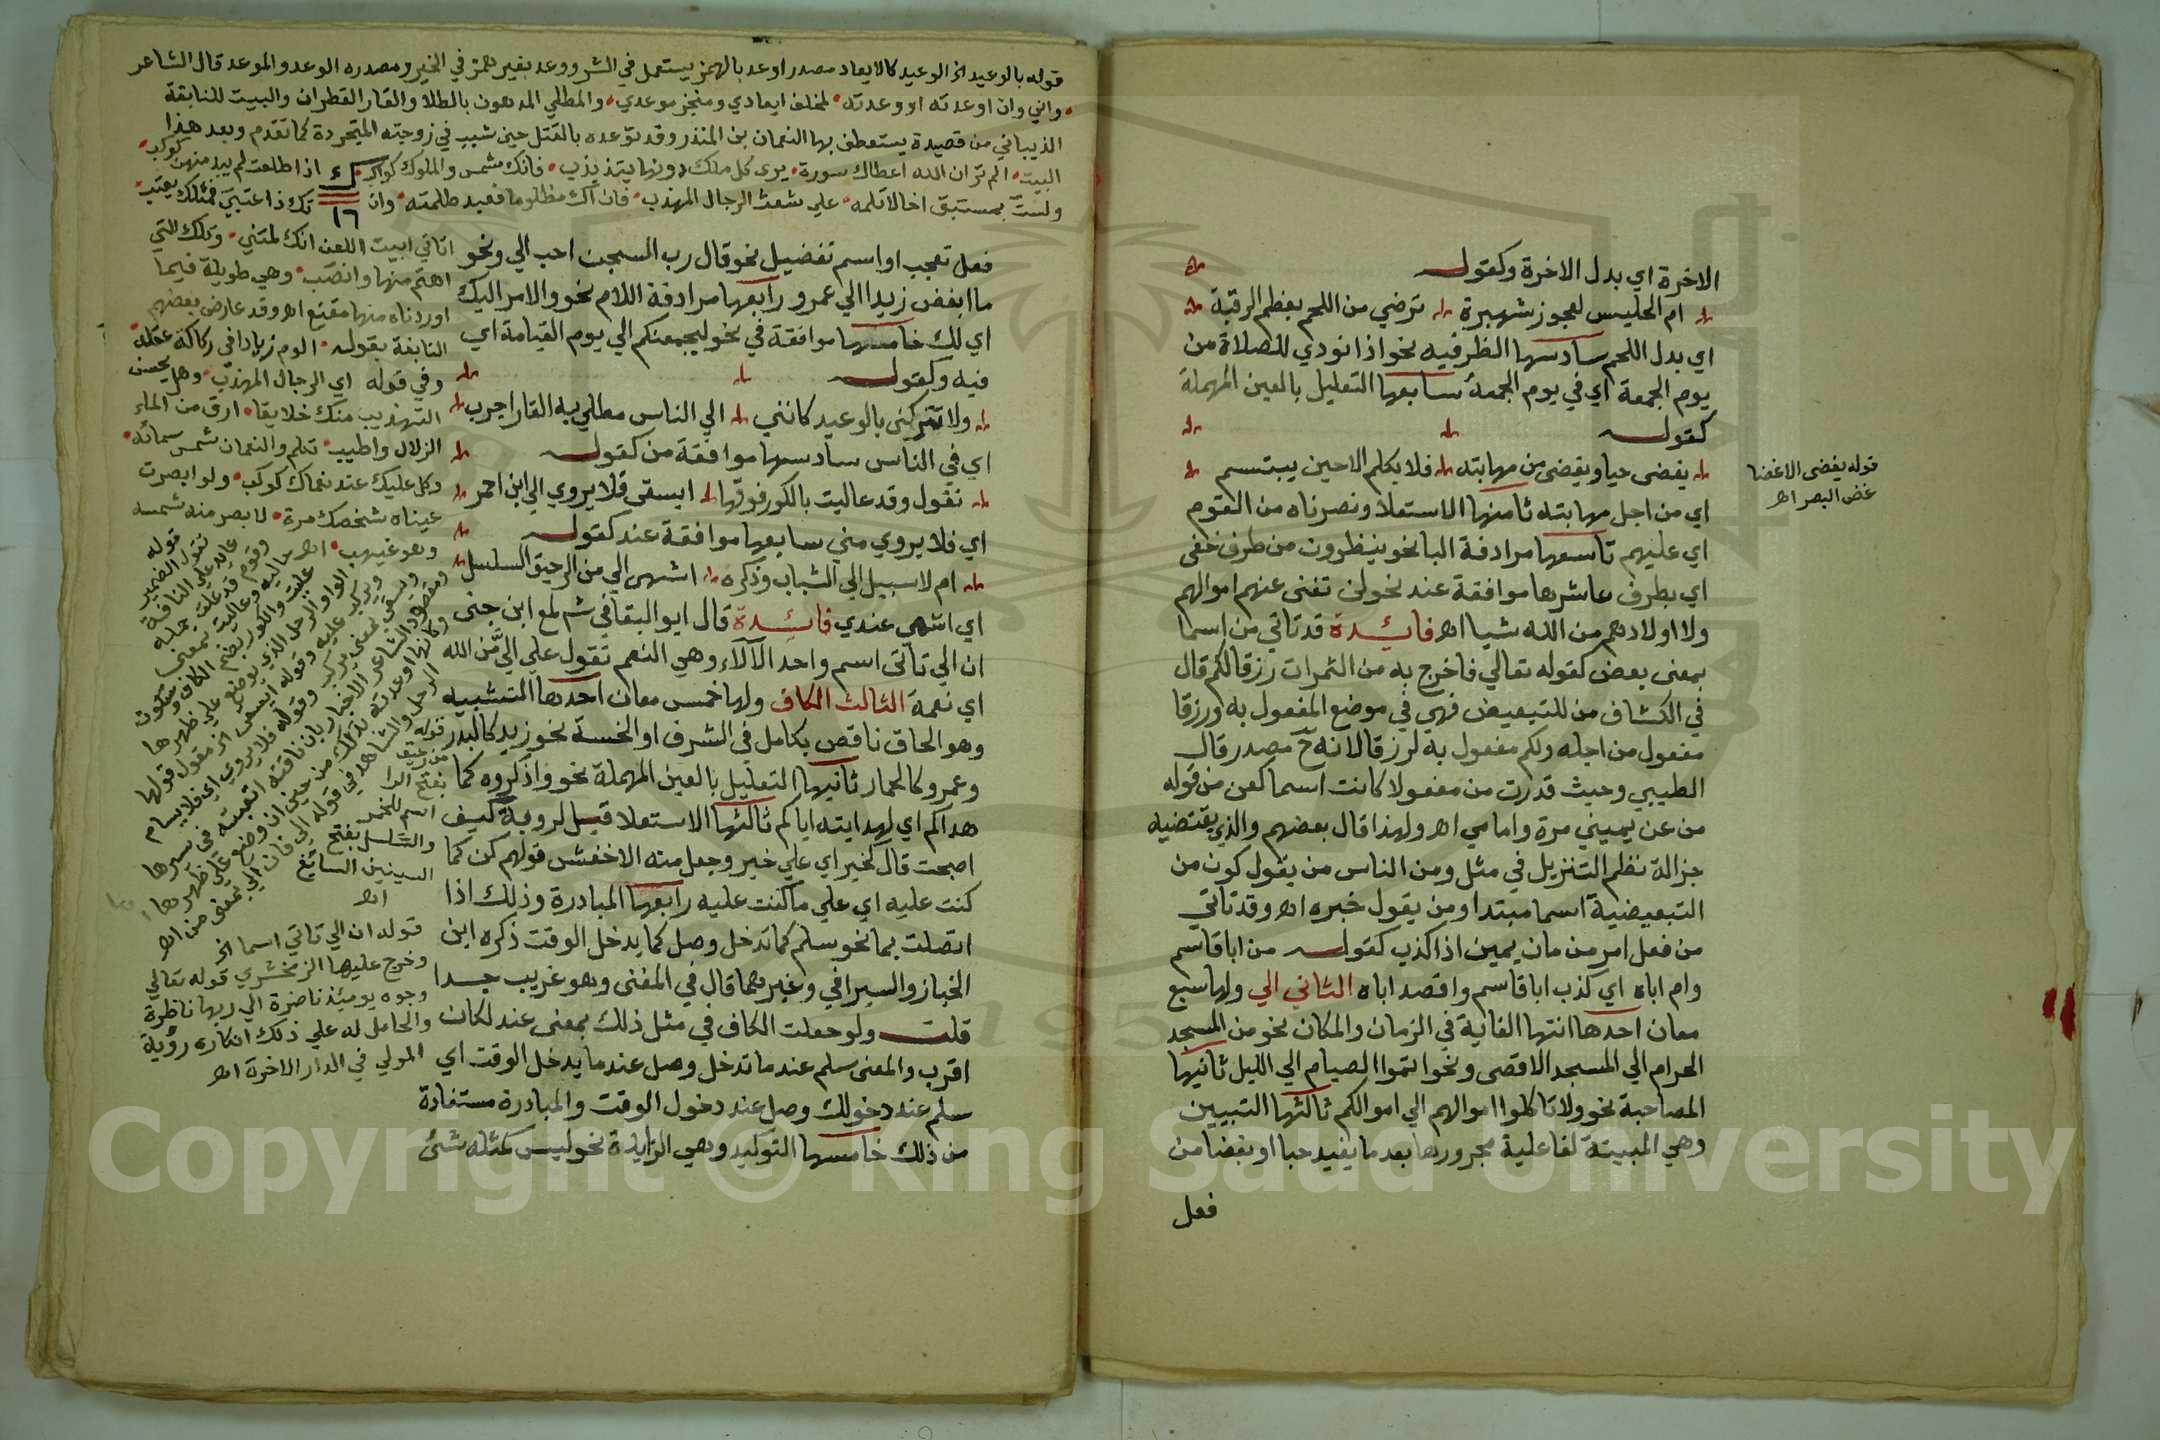 الاخرة اي بدل الاخرة وكقوله
ام الحليس لعجوز شهبرة ترضي من اللحم بعظم الرقبة
اي بدل اللحم سادسها الظرفيه نحو اذا نودي للصلاة من
يوم الجمعة اي في يوم الجمعة سابعها التعليل بالعين المهملة
كقوله
يغضى حيا ويغضى من مهابته فلا يكلم الا حين يبتسم
قوله يغضى الاغضا
غض البصر اه
اي من اجل مهابته ثامنها الاستعلا ونصرناه من القوم
اي عليهم تاسعها مرادفة البا نحو ينظرون من طرف خفى
اي بطرف عاشرها موافقة عند نحو لن تغنى عنهم اموالهم
ولا اولادهم من الله شيا اه فائدة قد تاتي من اسما
بمعنى بعض كقوله تعالي فاخرج به من الثمرات رزقا لكم قال
في الكشاف من للتبعيض فهي في موضع المفعول به ورزقا
مفعول من اجله ولكم مفعول به لرزقا لانه ح مصدر قال
الطيبي وحيث قدرت من مفعولا كانت اسما كعن من قوله
من عن يميني مرة وامامي اه ولهذا قال بعضهم والذي يقتضيه
جزالة نظم التنزيل في مثل ومن الناس من يقول كون من
التبعيضية اسما مبتدا ومن يقول خبره اه وقد تاتي
من فعل امر من مان يمين اذا كذب كقوله من ابا قاسم
وام اباه اي كذب ابا قاسم واقصد اباه الثاني الي ولها سبع
معان احدها انتها الغاية في الزمان والمكان نحو من المسجد
الحرام الي المسجد الاقصى ونحو اتموا الصيام الي الليل ثانيها
المصاحبة نحو ولا تاكلوا اموالهم الي اموالكم ثالثها التبيين
وهي المبينة لفاعلية مجرورها بعد ما يفيد حبا او بغضا من
فعل
قوله بالوعيد الوعيد كالايعاد مصدر اوعد بالهمز يستعمل في الشر ووعد بغير همز في الخير ومصدره الوعد والموعد قال الشاعر
واني وان اوعدته او وعدته لمخلف ايعادي ومنجز موعدي والمطلي المدهون بالطلا والقار القطران والبيت للنابغة
الذبياني من قصيدة يستعطف بها النعمان بن المنذر وقد توعده بالقتل حين شبب في زوجته المتجردة كما تقدم وبعد هذا
البيت الم تر ان الله اعطاك سورة يرى كل ملك دونها يتذبذب فانك شمس والملوك كواكب اذا طلعت لم يبد منهن كوكب
ولست بمستبق اخا لا تلمه علي شعث الرجال المهذب فان اك مظلوما فعبد ظلمته وان تك ذا عتبى فمثلك يعتب
١٦
اتاني ابيت اللعن انك لمتني وتلك التي
اهتم منها وانصب وهي طويلة فيما
اوردناه منها مقنع اه وقد عارض بعضهم
النابغة بقوله الوم زيادا في ركاكة عقله
وفي قوله اي الرجال المهذب وهل يحسن
التهذيب منك خلايقا ارق من الماء
الزلال واطيب تكلم والنعمان شمس سمائه
وكل عليك عند نعماك كوكب ولو ابصرت
عيناه شخصك مرة لابصر منه شمسه
وهو غيهب اه
فعل تعجب او اسم تفضيل نحو قال رب السجن احب الي ونحو
ما ابغض زيدا الي عمرو رابعها مرادفة اللام نحو والامر اليك
اي لك خامسها موافقة في نحو ليجمعنكم الي يوم القيامة اي
فيه وكقوله
ولا تتركني بالوعيد كانني الي الناس مطلي به القار اجرب
اي في الناس سادسها موافقة من كقوله
تقول وقد عاليت بالكور فوقها ايسقى فلا يروي الي ابن احمر
اي فلا يروي مني سابعها موافقة عند كقوله
ام لا سبيل الي الشباب وذكره اشهى الي من الرحيق السلسل
اي اشهى عندي فائدة قال ابو البقا في شرح لمع ابن جنى
ان الي تاتى اسم واحد الآلاء وهي النعم تقول علي الي من الله
اي نعمة الثالث الكاف ولها خمس معان احدها التشبيه
وهو الحاق ناقص بكامل في الشرف او الخسة نحو زيد كالبدر
وعمرو كالحمار ثانيها التعليل بالعين المهملة نحو واذكروه كما
هداكم اي لهدايته اياكم ثالثها الاستعلا قيل لروبة كيف
اصبحت قال كخير اي علي خير وجعل منه الاخفش قولهم كن كما
كنت عليه اي علي ما كنت عليه رابعها المبادرة وذلك اذا
اتصلت بما نحو سلم كما تدخل وصل كما يدخل الوقت ذكره ابن
الخباز والسيرافي وغيرهما قال في المغنى وهو غريب جدا
قلت ولو جعلت الكاف في مثل ذلك بمعنى عند لكان
اقرب والمعنى سلم عند ما تدخل وصل عند ما يدخل الوقت اي
سلم عند دخولك وصل عند دخول الوقت والمبادرة مستفادة
من ذلك خامسها التوكيد وهي الزايدة نحو ليس كمثله شئ
قوله
من رحيق
بفتح الرا
اسم للخمر
والسلسل بفتح
السينين السائغ
اه
قوله ان الي تاتي اسما الخ
وخرج عليها الزمخشري قوله تعالي
وجوه يومئذ ناضرة الي ربها ناظرة
والحامل له علي ذلك انكاره رؤية
المولي في الدار الاخرة اه